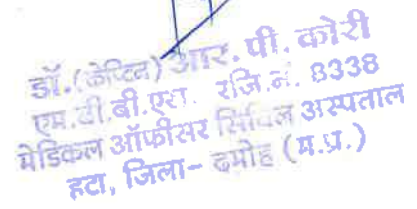 डॉ. (केप्टिन) आर. पी. कोरी
एम. बी. बी. एस. रजि. नं. 8338
मेडिकल ऑफीसर सिविल अस्पताल
हटा, जिला- दमोह (म.प्र.)